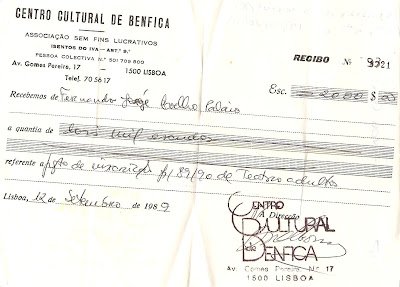 CENTRO CULTURAL DE BENFICA
ASSOCIAÇÃO SEM FINS LUCRATIVOS
ISENTOS DO IVA — ART.º 9.º
PESSOA COLECTIVA N.º 501 709 800
Av. Gomes Pereira, 17 — 1500 LISBOA
Telef. 70 56 17
RECIBO Nº 9921
Esc. — 2000 $ 00
Recebemos de Fernando José Coelho
a quantia de dois mil escudos
referente a pgto de inscrição p/ 89/90 de Teatro adultos
Lisboa, 12 de Setembro de 1989
A Direcção
CENTRO
CULTURAL
DE BENFICA
Av. Gomes Pereira, Nº 17
1500 LISBOA